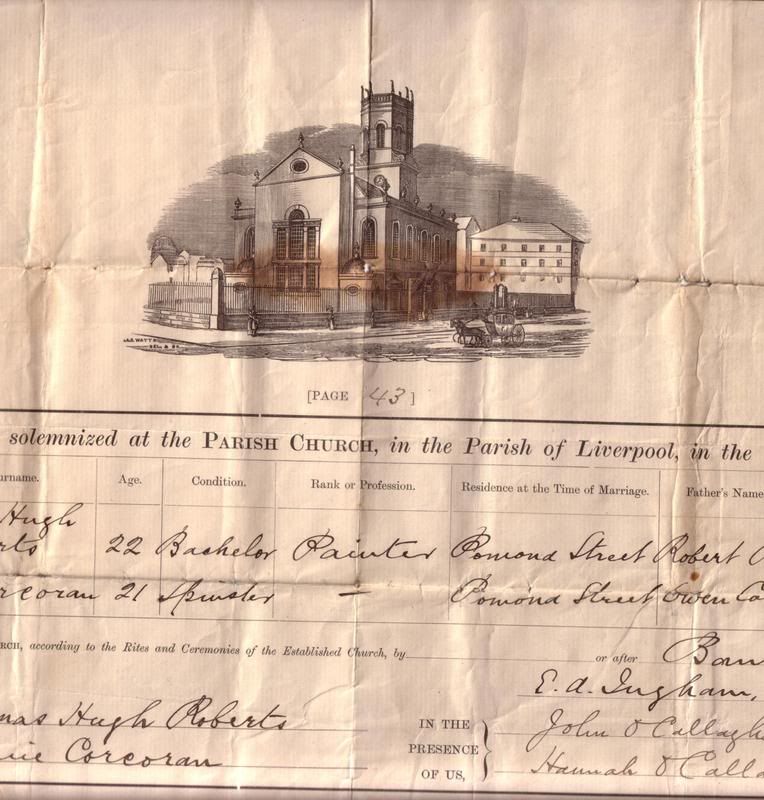 JAS. WATT
DEL. & SC.
[PAGE 43]
solemnized at the PARISH CHURCH, in the Parish of Liverpool, in the
urname. Age. Condition. Rank or Profession. Residence at the Time of Marriage. Father's Name
Hugh
rts 22 Bachelor Painter Pomona Street Robert
rcoran 21 Spinster — Pomona Street Owen Co
RCH, according to the Rites and Ceremonies of the Established Church, by or after Ban
E. A. Ingham,
mas Hugh Roberts IN THE John O'Callagh
PRESENCE
nie Corcoran OF US, Hannah O'Calla